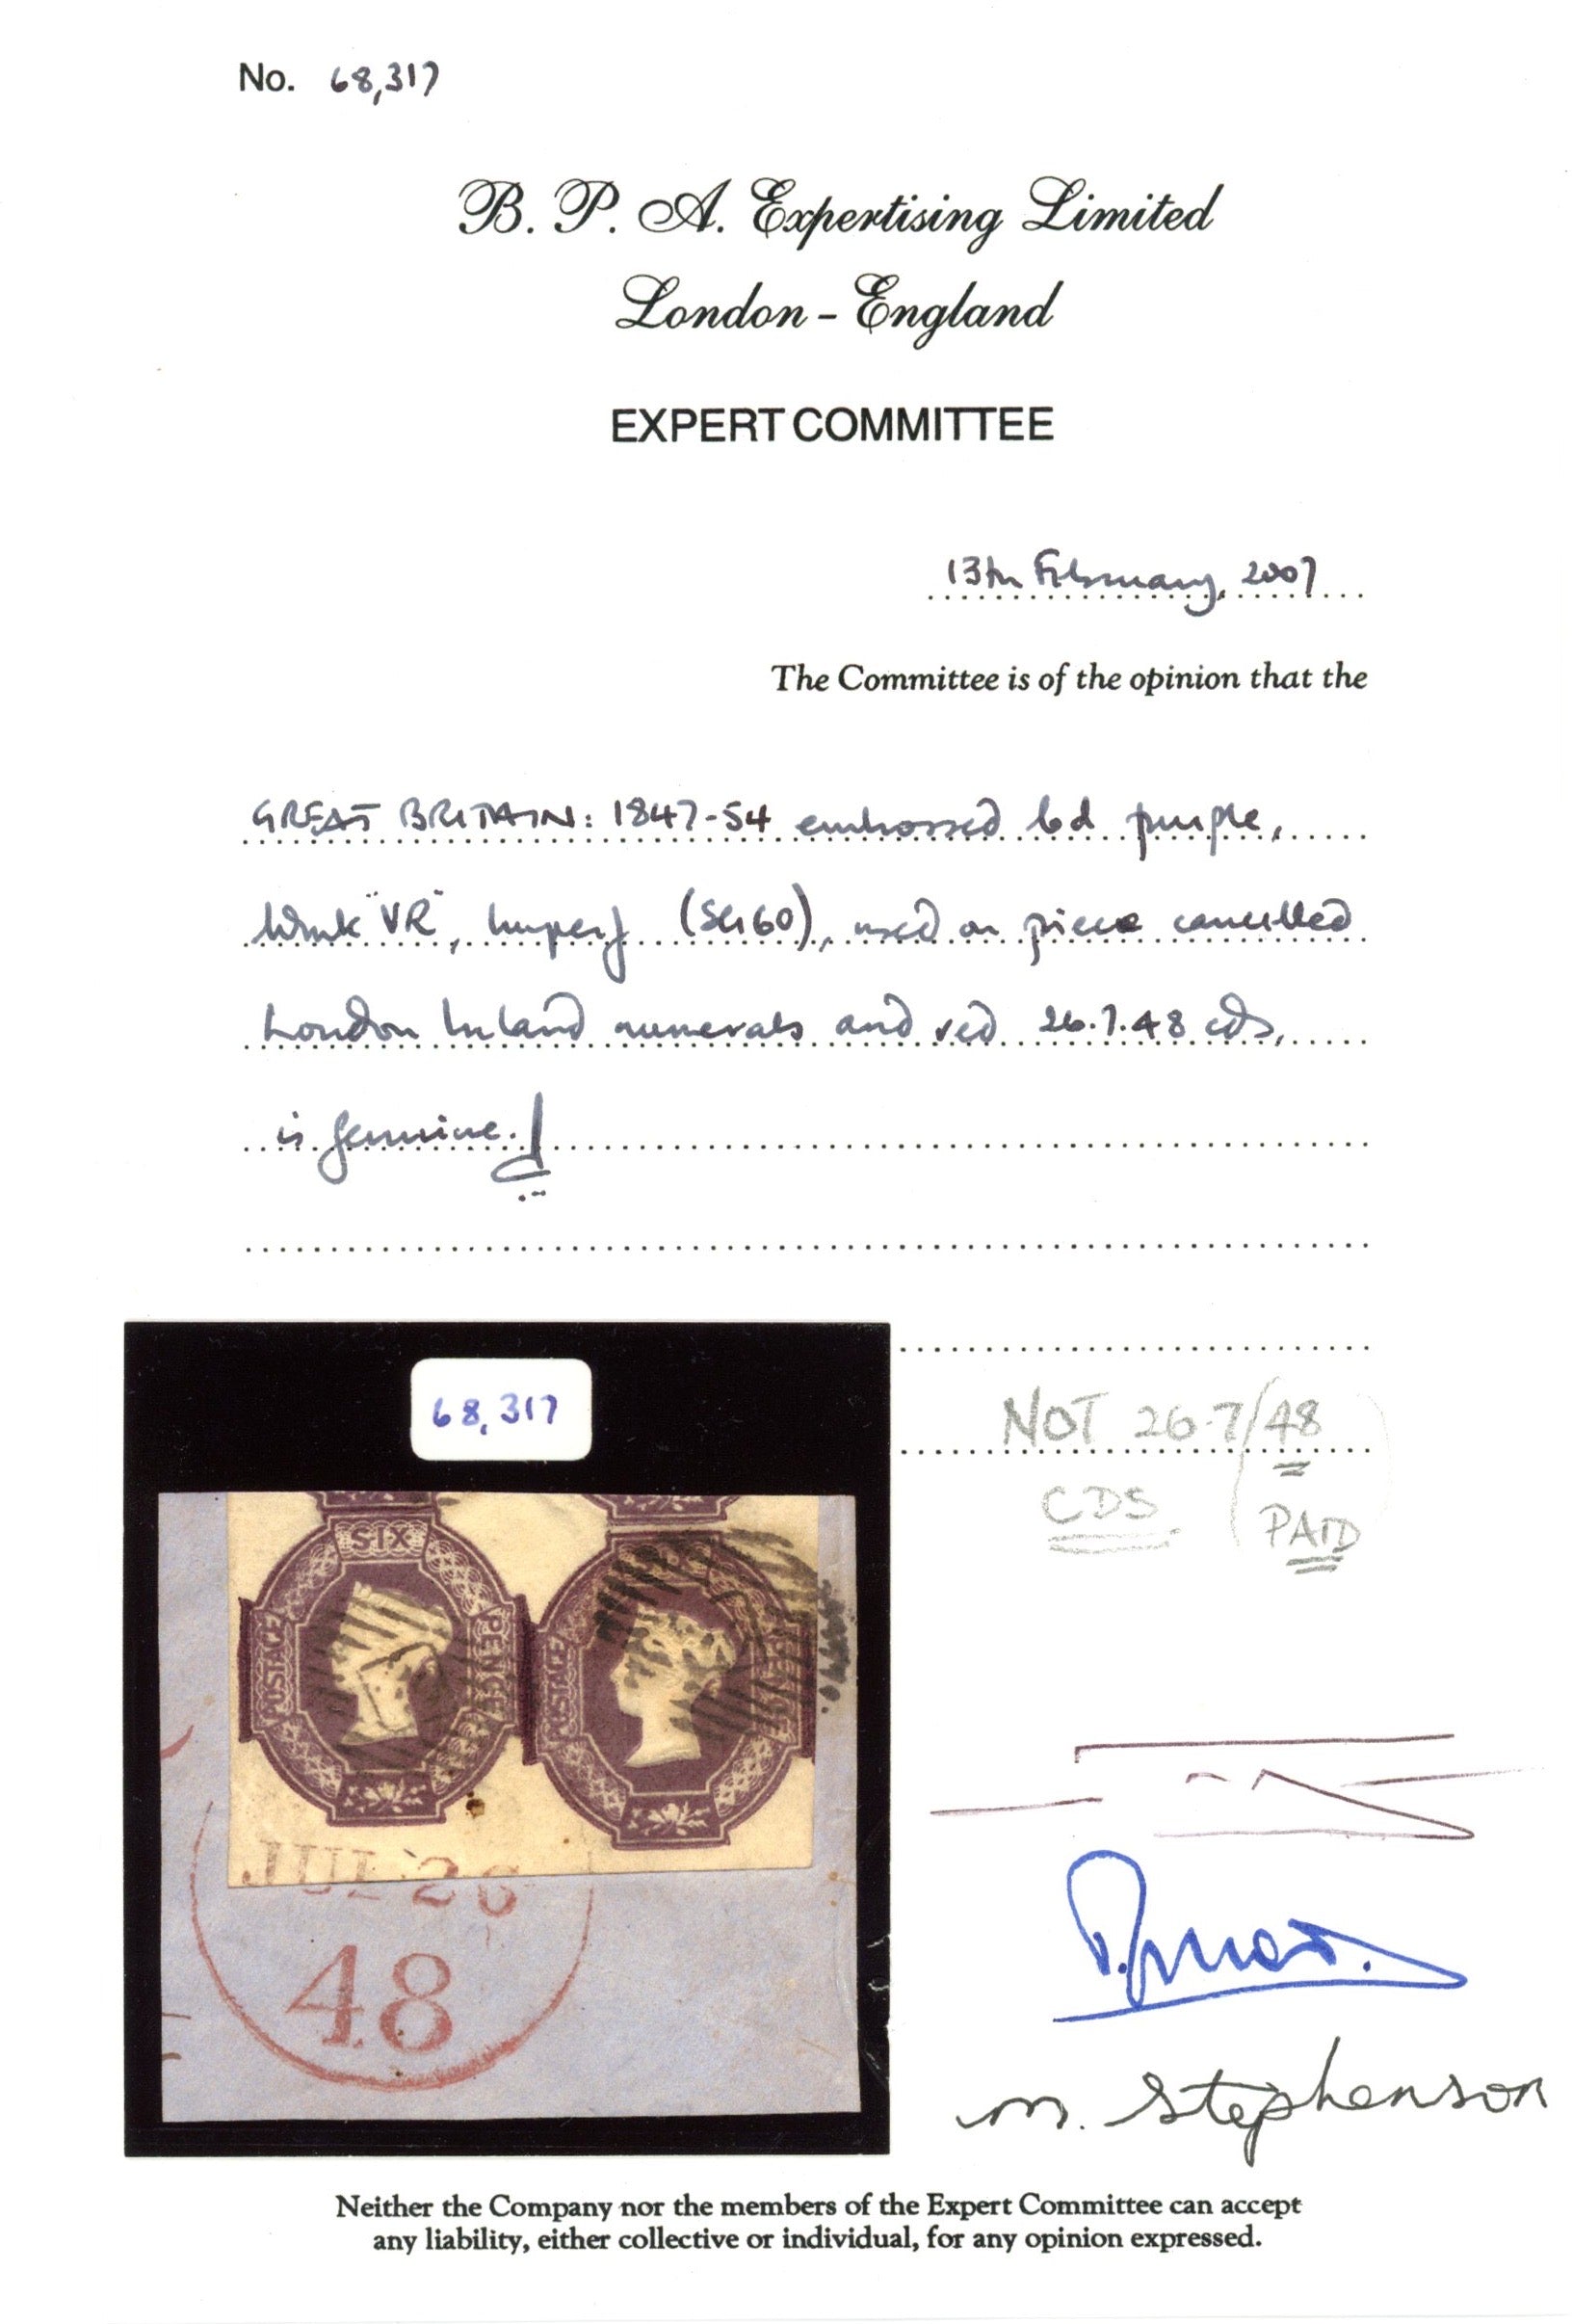 No. 68,317
B. P. A. Expertising Limited
London - England
EXPERT COMMITTEE
13th February, 2007
The Committee is of the opinion that the
GREAT BRITAIN: 1847-54 embossed 6d purple,
Wmk "VR", imperf (SG60), used on piece cancelled
London Inland numerals and red 26.7.48 cds,
is genuine.
68,317
NOT 26.7/48
CDS PAID
SIX
POSTAGE PENCE POSTAGE
JUL 26
48
M. Stephenson
Neither the Company nor the members of the Expert Committee can accept
any liability, either collective or individual, for any opinion expressed.